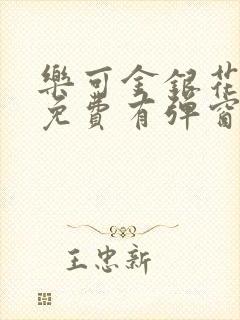 樂可金銀花
免費有彈窗
王忠新